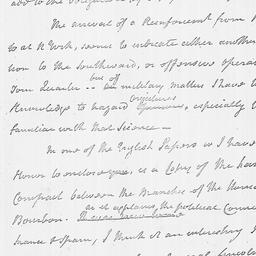 The arrival of a Reinforcement from
to at N York, seems to indicate either another
tion to the Southward, or offensive Opera
from Quarter -- but of military matters I have t
Knowledge to hazard Conjectures, especially
familiar with that Science --
In one of the English Papers I have
Honor to enclose is a Copy of the
Compact between the Branches of the
Bourbon. as it explains the political Conne
France & Spain, I think it an interesting